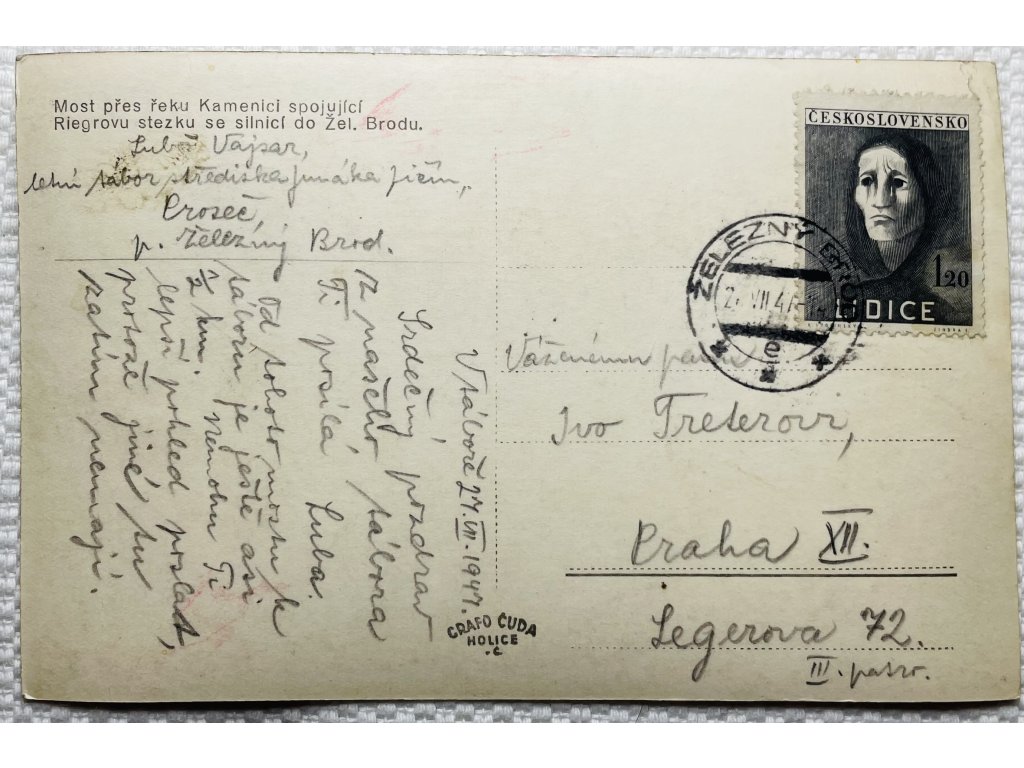 Most přes řeku Kamenici spojující
Riegrovu stezku se silnicí do Žel. Brodu.
Luboš Vajsar,
letní tábor střediska Junáka Jičín,
Proseč,
p. Železný Brod.
V táboře 27.VII.1947.
Srdečný pozdrav
z našeho tábora
Ti posílá Luba.
Od tohoto mostu k
táboru je ještě asi
½ km. Nemohu Ti
lepší pohled poslat,
protože jiné tu
zatím nemají.
GRAFO ČUDA
HOLICE
ČESKOSLOVENSKO
1.20
LIDICE
ŽELEZNÝ BROD
VII.47
Váženému panu
Ivo Treterovi,
Praha XII.
Legerova 72.
III. patro.